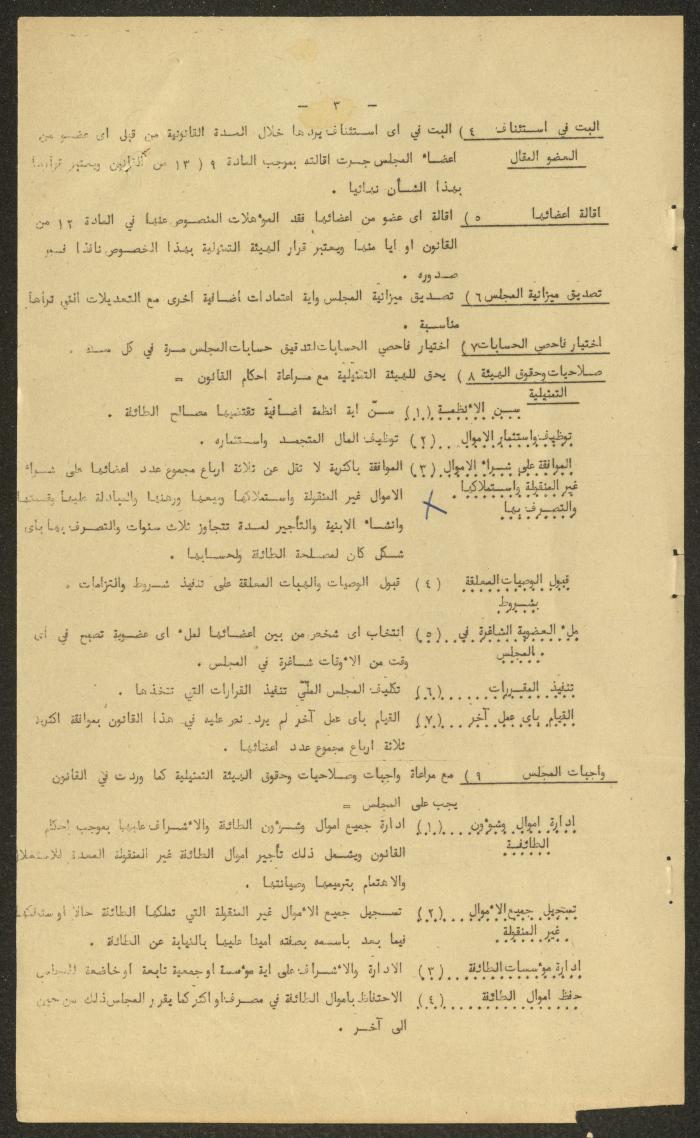 - ٣ -
البت في استئناف ٤) البت في اى استئناف يردها خلال المدة القانونية من قبل اى عضو من
العضو المقال اعضاء المجلس جرت اقالته بموجب المادة ٩ (١٣ من القانون ويعتبر قرارها
بهذا الشأن نهائيا .
اقالة اعضائها ٥) اقالة اى عضو من اعضائها فقد المؤهلات المنصوص عنها في المادة ١٢ من
القانون او ايا منها ويعتبر قرار الهيئة التمثيلية بهذا الخصوص نافذا فور
صدوره .
تصديق ميزانية المجلس ٦) تصديق ميزانية المجلس واية اعتمادات أضافية أخرى مع التعديلات التي تراها
مناسبة .
اختيار فاحصي الحسابات ٧) اختيار فاحصي الحسابات لتدقيق حسابات المجلس مرة في كل سنة .
صلاحيات وحقوق الهيئة ٨) يحق للهيئة التمثيلية مع مراعاة احكام القانون =
التمثيلية
سن الأنظمة (١) سنّ اية انظمة اضافية تقتضيها مصالح الطائفة .
توظيف واستثمار الاموال (٢) توظيف المال المتجمد واستثماره .
الموافقة على شراء الاموال (٣) الموافقة باكثرية لا تقل عن ثلاثة ارباع مجموع عدد اعضائها على شراء
غير المنقولة واستملاكها . الاموال غير المنقولة واستملاكها وبيعها ورهنها والمبادلة عليها وقسمتها
والتصرف بها وانشاء الابنية والتأجير لمدة تتجاوز ثلاث سنوات والتصرف بها باى
شكل كان لمصلحة الطائفة ولحسابها .
قبول الوصيات المعلقة (٤) قبول الوصيات والهبات المعلقة على تنفيذ شروط والتزامات .
بشروط
ملء العضوية الشاغرة في (٥) انتخاب اى شخص من بين اعضائها لملء اى عضوية تصبح في اى
المجلس . وقت من الأوقات شاغرة في المجلس .
تنفيذ المقررات (٦) تكليف المجلس الملّي تنفيذ القرارات التي تتخذها .
القيام باى عمل آخر (٧) القيام باى عمل آخر لم يرد نص عليه في هذا القانون بموافقة اكثرية
ثلاثة ارباع مجموع عدد اعضائها .
واجبات المجلس ٩) مع مراعاة واجبات وصلاحيات وحقوق الهيئة التمثيلية كما وردت في القانون
يجب على المجلس =
ادارة اموال وشؤون (١) ادارة جميع اموال وشؤون الطائفة والأشراف عليها بموجب احكام
الطائفة القانون ويشمل ذلك تأجير اموال الطائفة غير المنقولة المعدة للاستغلال
والاهتمام بترميمها وصيانتها .
تسجيل جميع الأموال (٢) تسجيل جميع الأموال غير المنقولة التي تملكها الطائفة حالا او ستملكها
غير المنقولة فيما بعد باسمه بصفته امينا عليها بالنيابة عن الطائفة .
ادارة مؤسسات الطائفة (٣) الادارة والأشراف على اية مؤسسة او جمعية تابعة او خاضعة للمجلس
حفظ اموال الطائفة (٤) الاحتفاظ باموال الطائفة في مصرف او اكثر كما يقرر المجلس ذلك من حين
الى آخر .